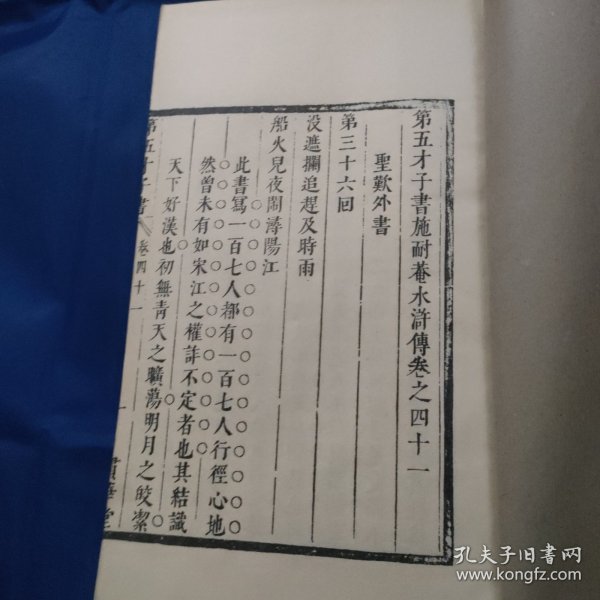 第五才子書施耐菴水滸傳卷之四十一
聖歎外書
第三十六回
没遮攔追趕及時雨
船火兒夜鬧潯陽江
此書寫一百七人都有一百七人行徑心地
然曾未有如宋江之權詐不定者也其結識
天下好漢也初無青天之曠蕩明月之皎潔
第五才子書
卷四十一
一
貫華堂
孔夫子旧书网
www.kongfz.com